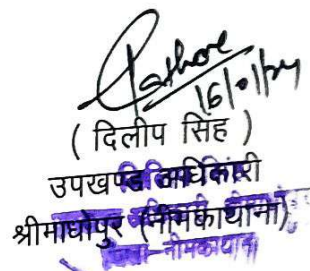 Rathore
16/01/24
( दिलीप सिंह )
उपखण्ड अधिकारी
श्रीमाधोपुर (नीमकाथाना)